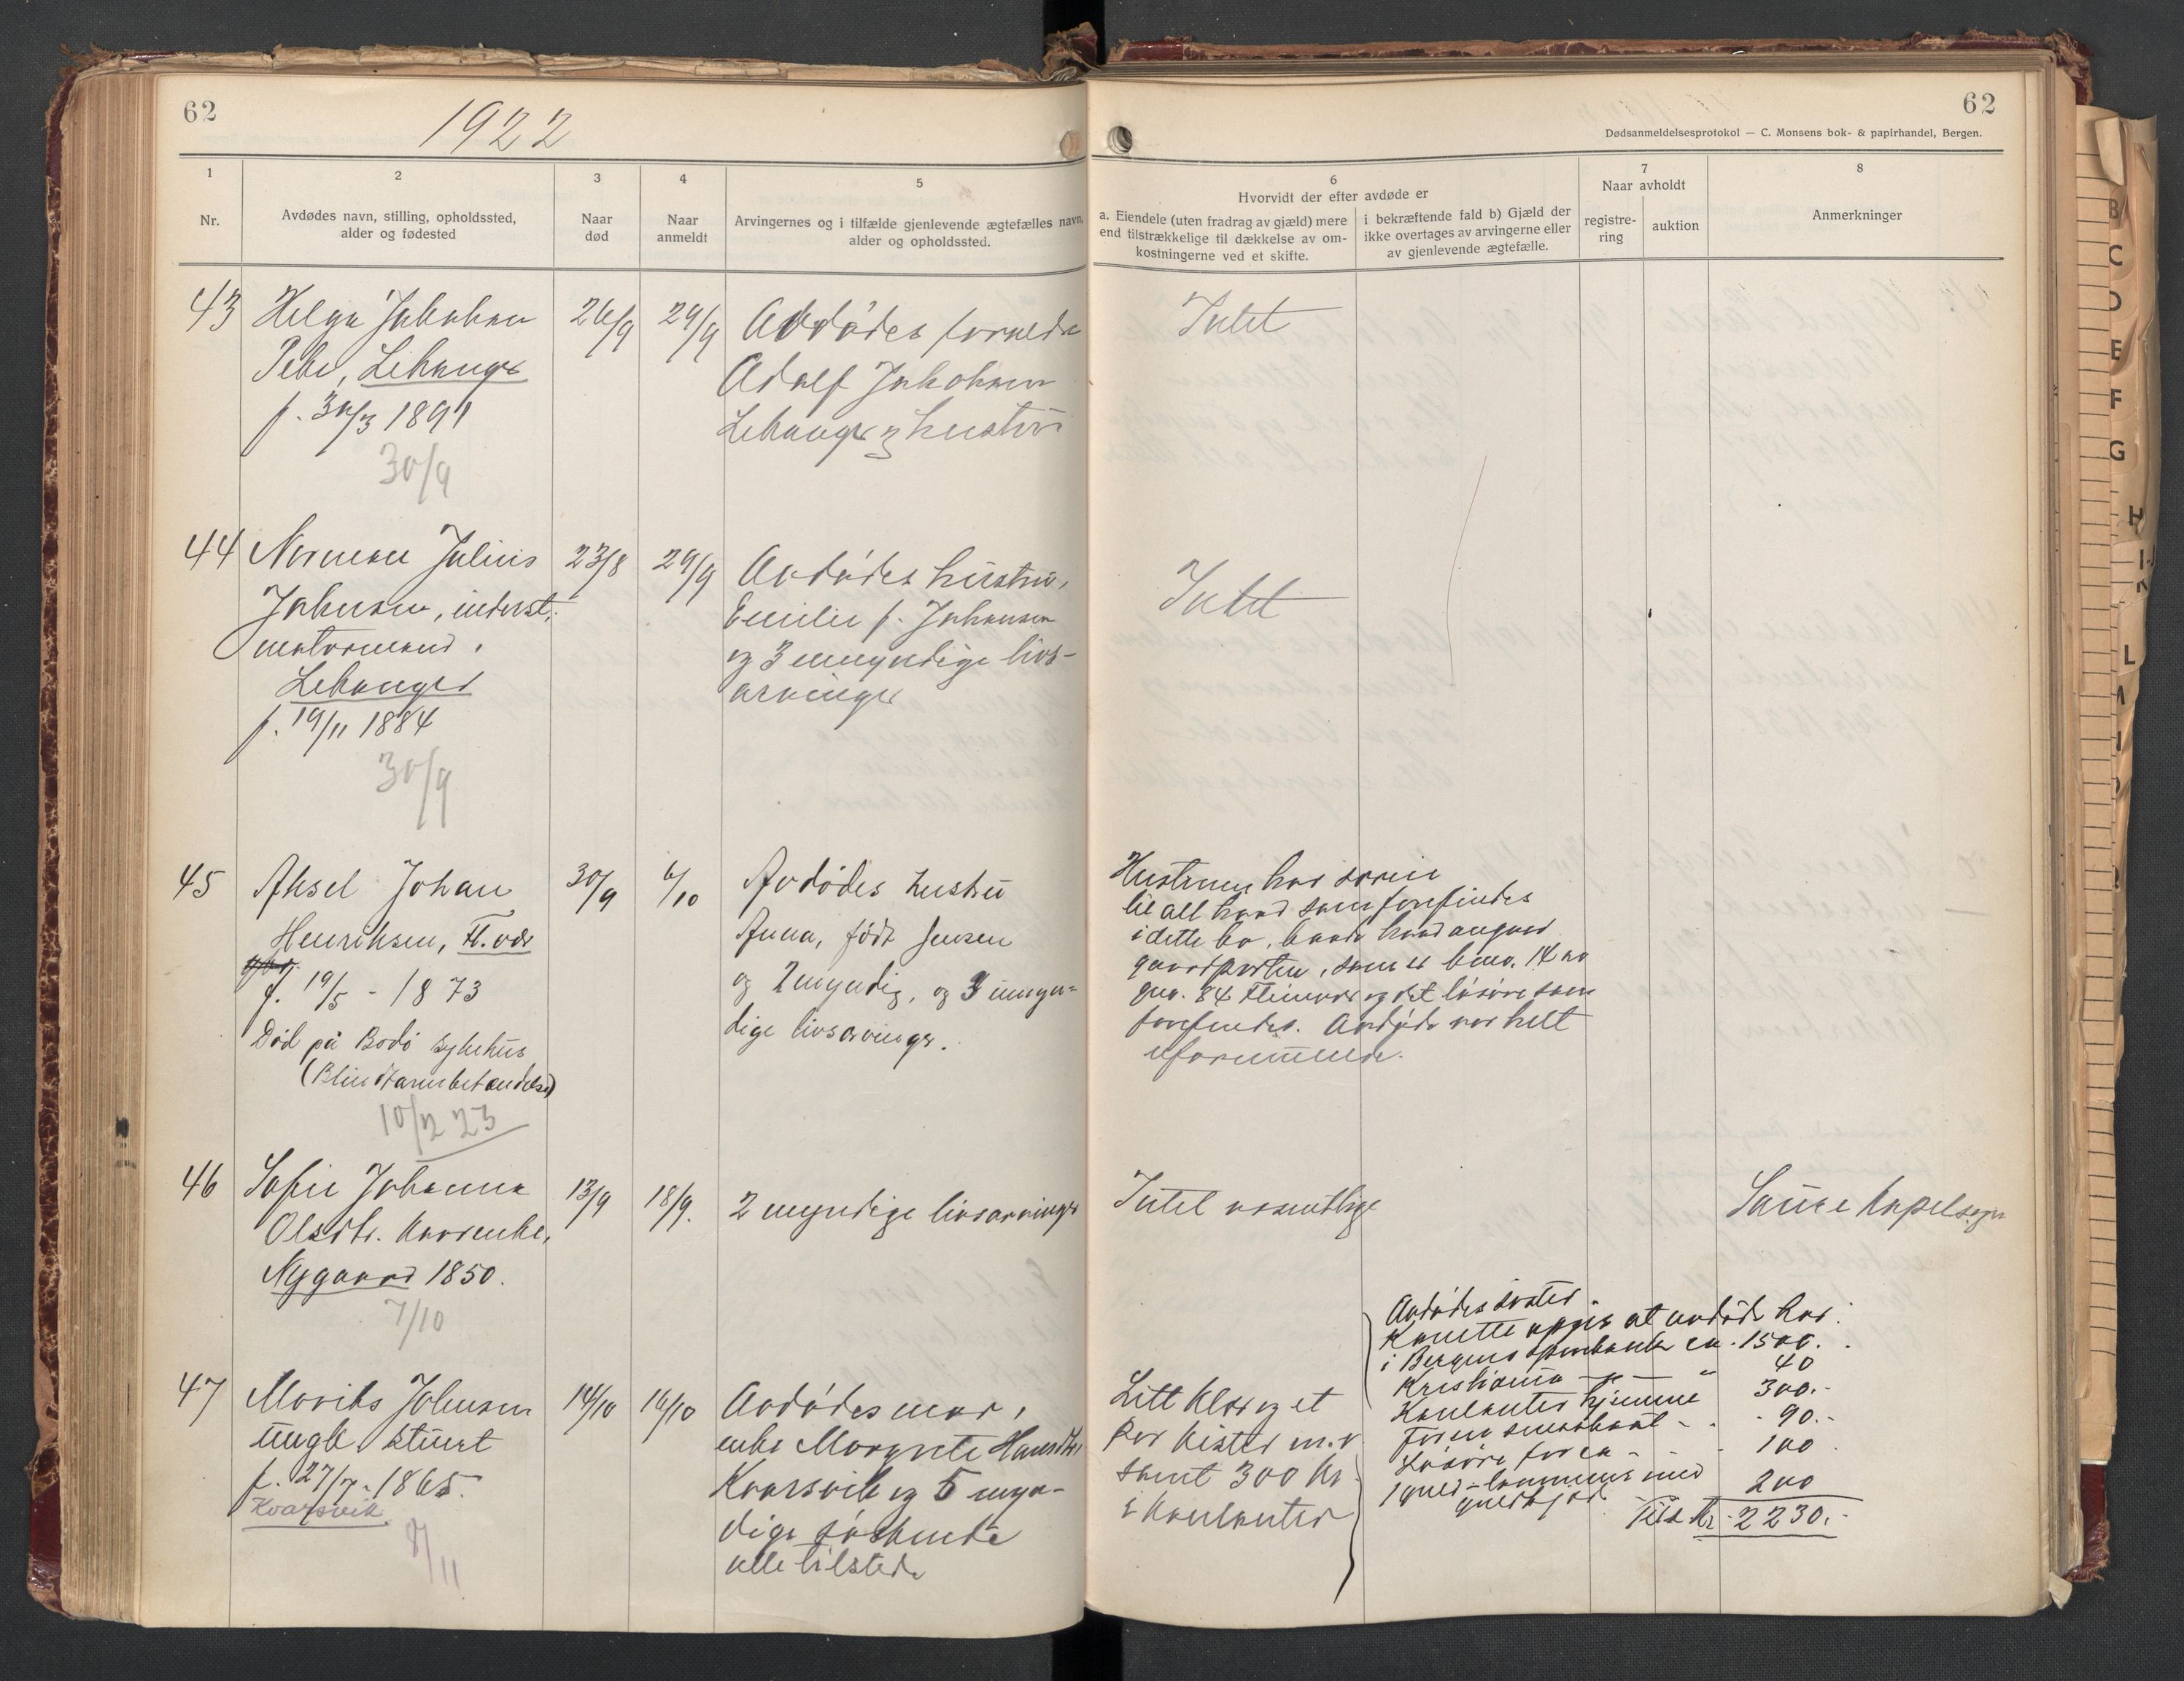 62
1922
62
Dødsanmeldelsesprotokol — C. Monsens bok- & papirhandel, Bergen.
1
Nr.
2
Avdødes navn, stilling, opholdssted,
alder og fødested
3
Naar
død
4
Naar
anmeldt
5
Arvingernes og i tilfælde gjenlevende ægtefælles navn,
alder og opholdssted.
6
Hvorvidt der efter avdøde er
a. Eiendele (uten fradrag av gjæld) mere
end tilstrækkelige til dækkelse av om-
kostningerne ved et skifte.
i bekræftende fald b) Gjæld der
ikke overtages av arvingerne eller
av gjenlevende ægtefælle.
7
Naar avholdt
registre-
ring
auktion
8
Anmerkninger
43
Helga Jakobsen
Lekanger
f. 30/3 1891
30/9
26/9
29/9
Avdødes forældr
Adolf Jakobsen
Lekanger og hustru
Intet
44
Norman Julius
Johnsen, inderst,
Lekanger
f. 19/11 1884
30/9
23/8
29/9
Avdødes hustru,
Emilie f. Johansen
og 3 umyndige livs-
arvinger
Intet
45
Aksel Johan
Henriksen, Fl. vær
f. 19/5 - 1873
Død på Bodø sykehus
(Blindtarmbetændelse)
10/2 23
30/9
6/10
Avdødes hustru
Anna, født Jensen
og 2 myndig, og 3 umyn-
dige livsarvinger.
Hustruen har
til alt hvad som forefindes
i dette bo, baade hvad angaar
gaardparten, som er bno. 14 av
gno. 84 Fleinvær og det løsøre som
forefindes. Avdøde var helt
uformuende.
46
Sofie Johanna
Olsdtr. kaarenke,
Nygaard 1850.
7/10
13/9
18/9.
2 myndige livsarvinger
Intet væsentlige
Saura kapelsogn
47
Moriks Johnsen
ungk. stuert
f. 27/7. 1865.
Kvarsvik
8/11
14/10
16/10
Avdødes mor,
enke Margrete Hansdtr
Kvarsvik og 5 myn-
dige søskende
alle tilstede
Litt klær og et
par kister m.v.
samt 300 kr
i kontanter
Avdødes søster
opgir at avdøde har:
i Bergens sparebank ca. 1500.
Kristiania — " — 40
Kontanter hjemme 300.-
90.-
Løsøre for ca - 100
1 guld-lommeur med
guldkjede 200
Tils. kr. 2230.-